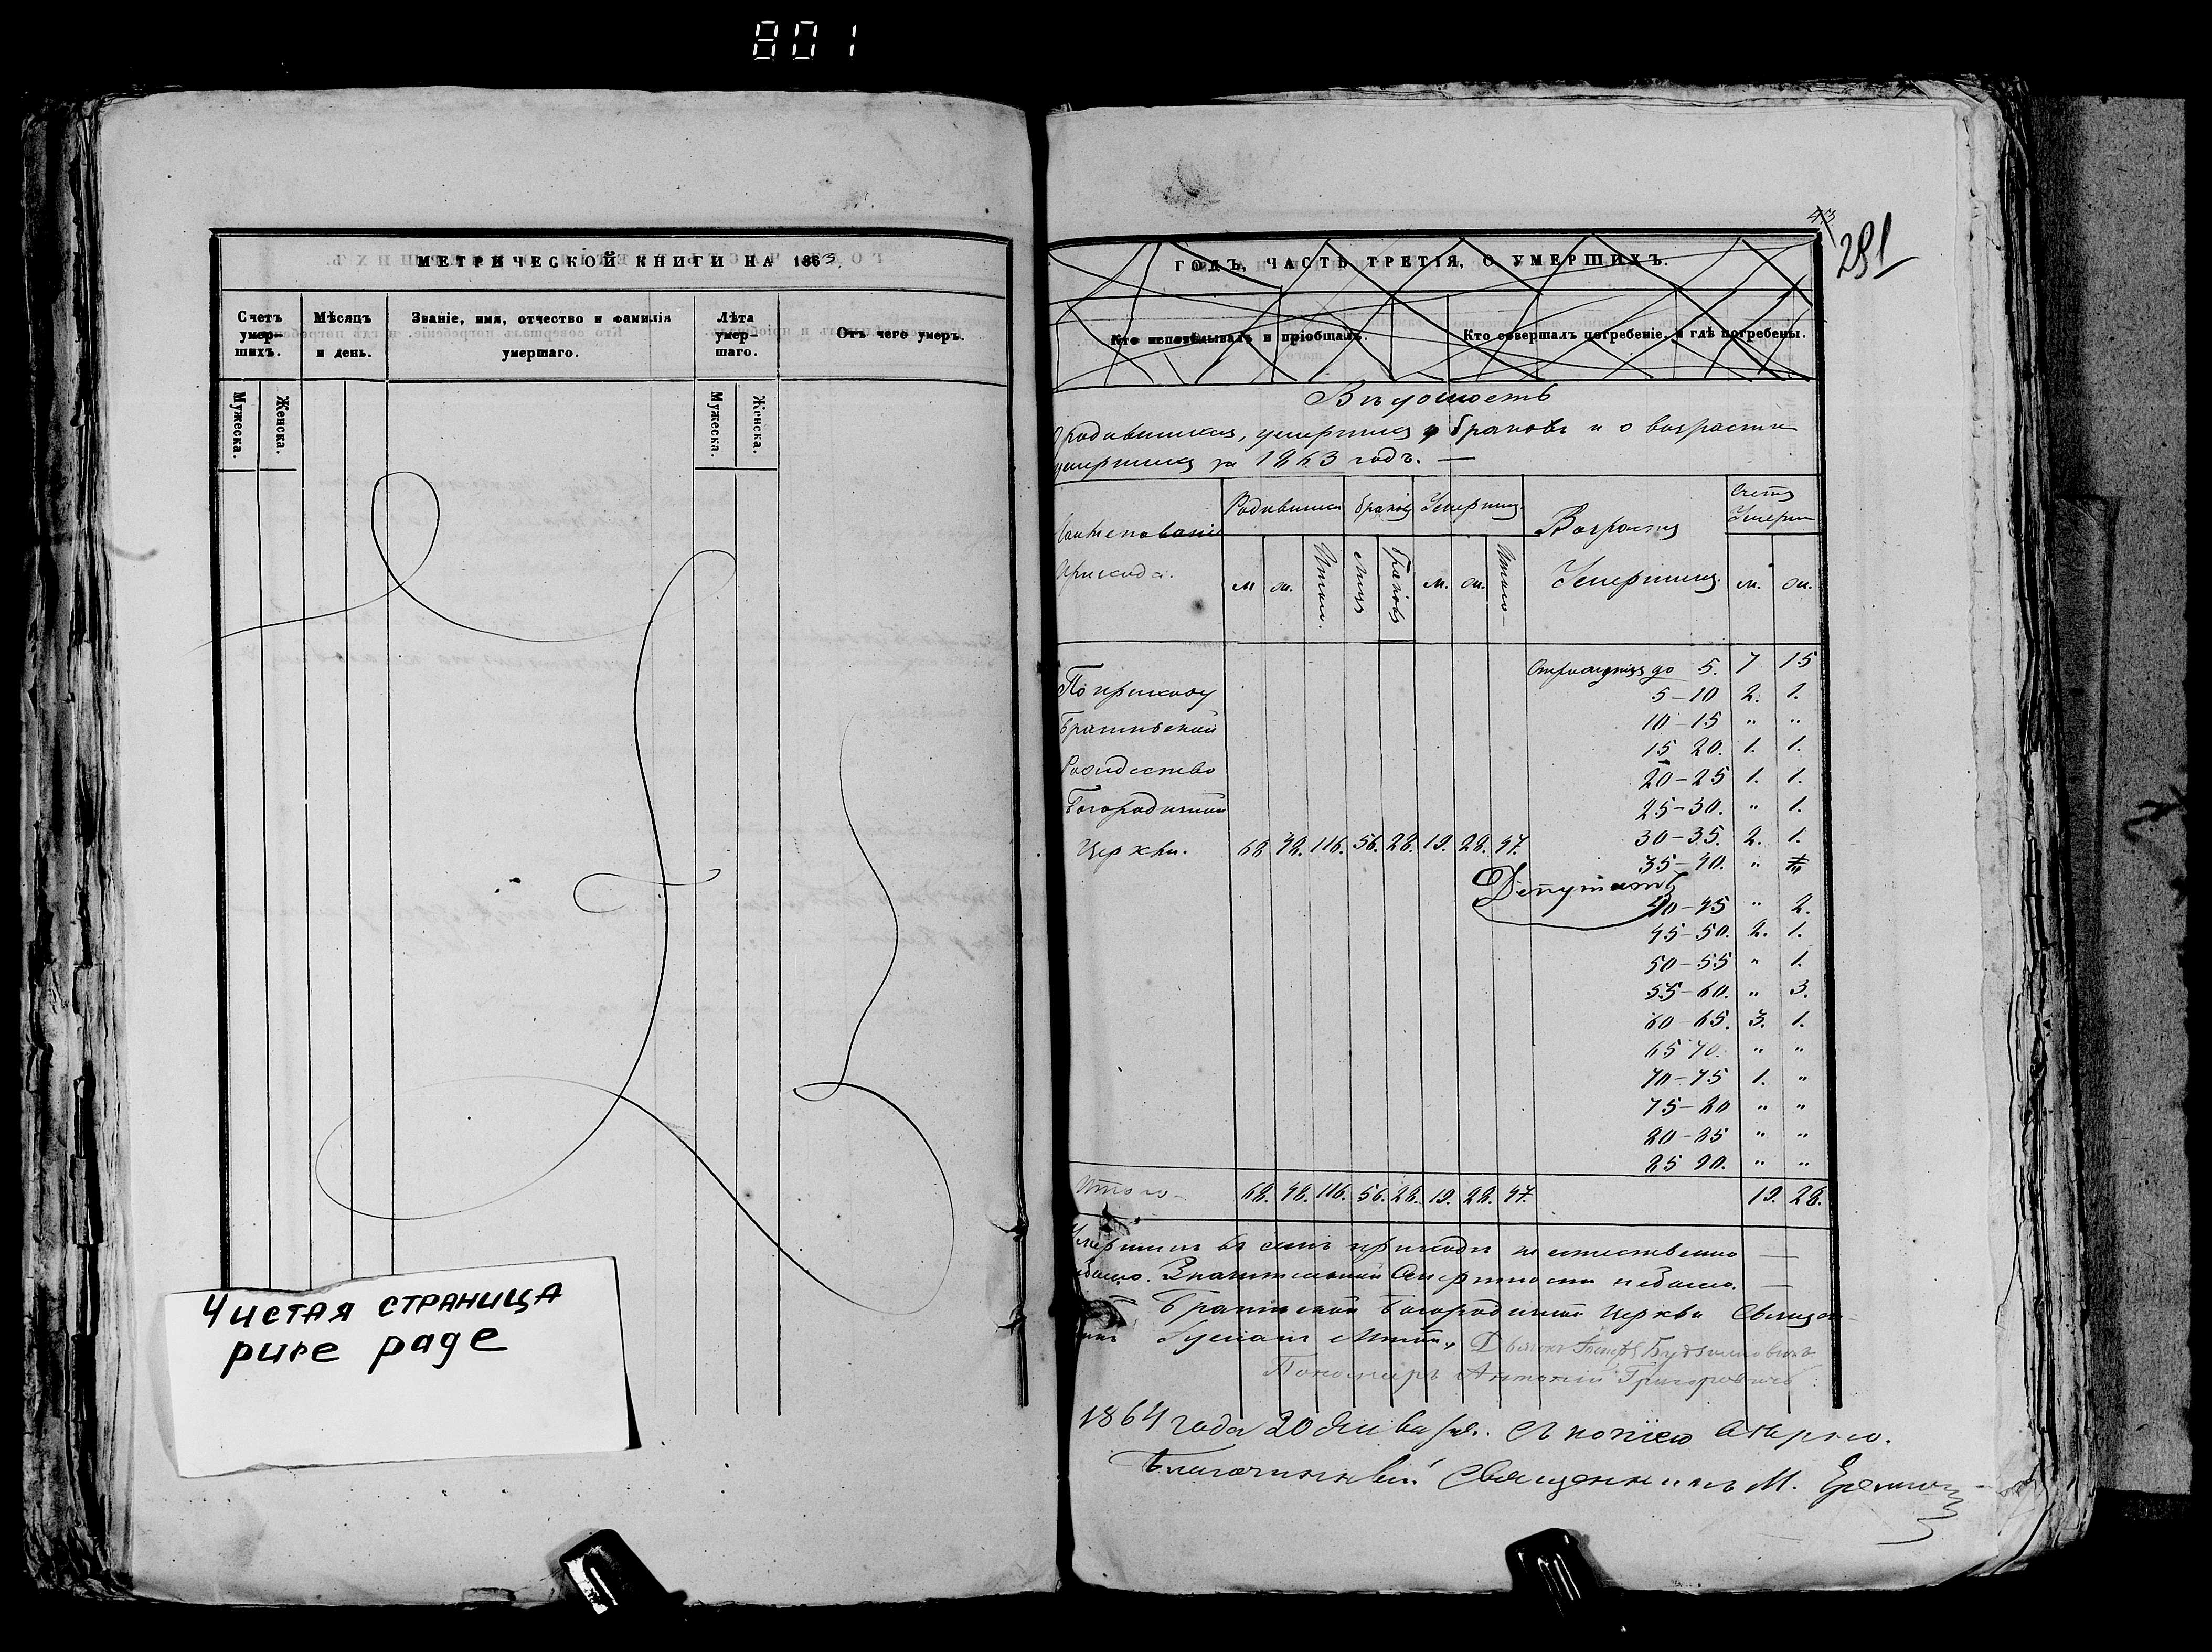 801
МЕТРИЧЕСКОЙ КНИГИ НА 1863.
Счетъ умер-шихъ.
Мѣсяцъ и день.
Званіе, имя, отчество и фамилія умершаго.
Лѣта умер-шаго.
Отъ чего умеръ.
Мужеска.
Женска.
Мужеска.
Женска.
Чистая страница
pure page
43
291
ГОДЪ, ЧАСТЬ ТРЕТІЯ, О УМЕРШИХЪ.
Кто исповѣдывалъ и пріобщалъ.
Кто совершалъ погребеніе, и гдѣ погребены.
Вѣдомость
родившихся, умершихъ браковъ и о возрасти
умершихъ за 1863 годъ. —
Наименованіе
прихода.
Родившихся
браковъ
Умершихъ
Возрастъ
Умершихъ.
Счетъ
Умерш
м ж. Итого. Лицъ Браковъ м. ж. Итого м. ж.
По приходу
Братиской
Рождество
Богородичной
Церкви. 68 48. 116. 56. 28. 19. 28. 47.
Отрожденія до 5. 7 15
5-10 2. 1.
10-15 " "
15 20. 1. 1.
20-25 1. 1.
25-30. " 1.
30-35. 2. 1.
35-40. "
Депутатъ
40-45 " 2.
45-50. 2. 1.
50-55 " 1.
55-60. " 3.
60-65. 3. 1.
65 70. " "
70-75 1. "
75-80 " "
80-85 " "
85 90. " "
Итого 68. 48. 116. 56. 28. 19. 28. 47. 19. 28.
Умершихъ въ семъ приходѣ неестественно —
небыло. Значительной Смертности небыло. —
Богородичной Церкви Священ-
никъ
Пономарь Антоній Григоровичъ
1864 года 20 дня Съ копіею вѣрно.
Благочинный Священникъ М.